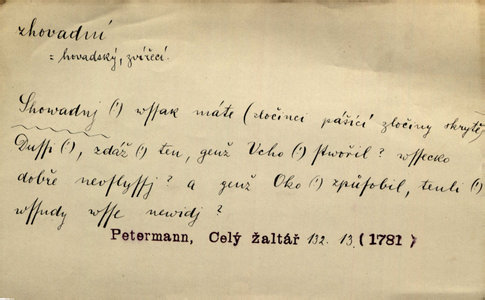 zhovadní
= hovadský, zvířecí.
Showadnj (') wssak máte (zločinci pášící zločiny skrytě)
Dussi ('), zdáž (') ten, genž Ucho (') stwořil? wssecko
dobře neoslyssj? a genž Oko (') způsobil, tenli (')
wssudy wsse newidj?
Petermann, Celý žaltář 132. 13. (1781)